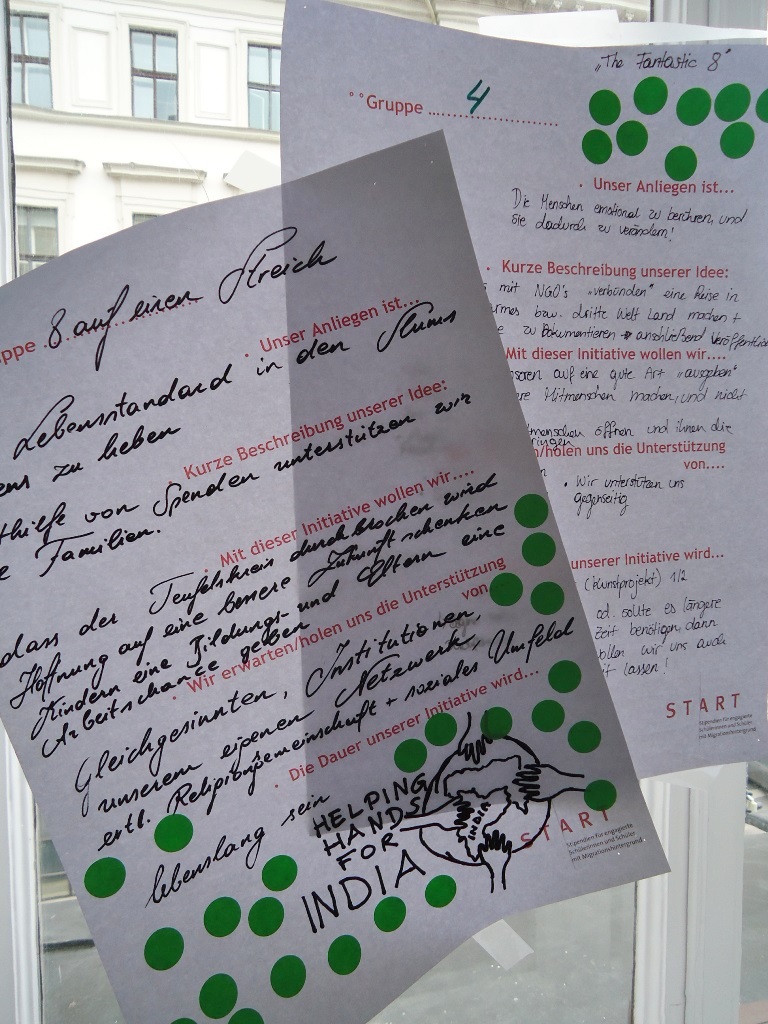 „The Fantastic 8“
°°Gruppe 4
• Unser Anliegen ist...
Die Menschen emotional zu berühren, und
sie dadurch zu verändern!
• Kurze Beschreibung unserer Idee:
mit NGO's „verbünden“ eine Reise in
bzw. dritte Welt Land machen +
zu Dokumentieren → anschließend
Mit dieser Initiative wollen wir....
auf eine gute Art „ausgeben“
Mitmenschen machen, und nicht
öffnen und ihnen die
n/holen uns die Unterstützung
von....
• Wir unterstützen uns
gegenseitig
unserer Initiative wird...
(Kunstprojekt) 1/2
sollte es längere
Zeit benötigen, dann
wir uns auch
lassen!
START
Stipendien für engagierte
Schülerinnen und Schüler
mit Migrationshintergrund
ppe 8 auf einen Streich
• Unser Anliegen ist...
Lebensstandard in den Slums
ens zu heben
Kurze Beschreibung unserer Idee:
thilfe von Spenden unterstützen wir
e Familien.
• Mit dieser Initiative wollen wir....
dass der Teufelskreis durchbrochen wird
Hoffnung auf eine bessere Zukunft schenken
Kindern eine Bildungs- und Eltern eine
Arbeitschance geben
• Wir erwarten/holen uns die Unterstützung
von
Gleichgesinnten, Institutionen,
unserem eigenen Netzwerk,
evtl. Religionsgemeinschaft + soziales Umfeld
• Die Dauer unserer Initiative wird...
lebenslang sein
HELPING
HANDS
FOR
INDIA
INDIA
START
Stipendien für engagierte
Schülerinnen und Schüler
mit Migrationshintergrund